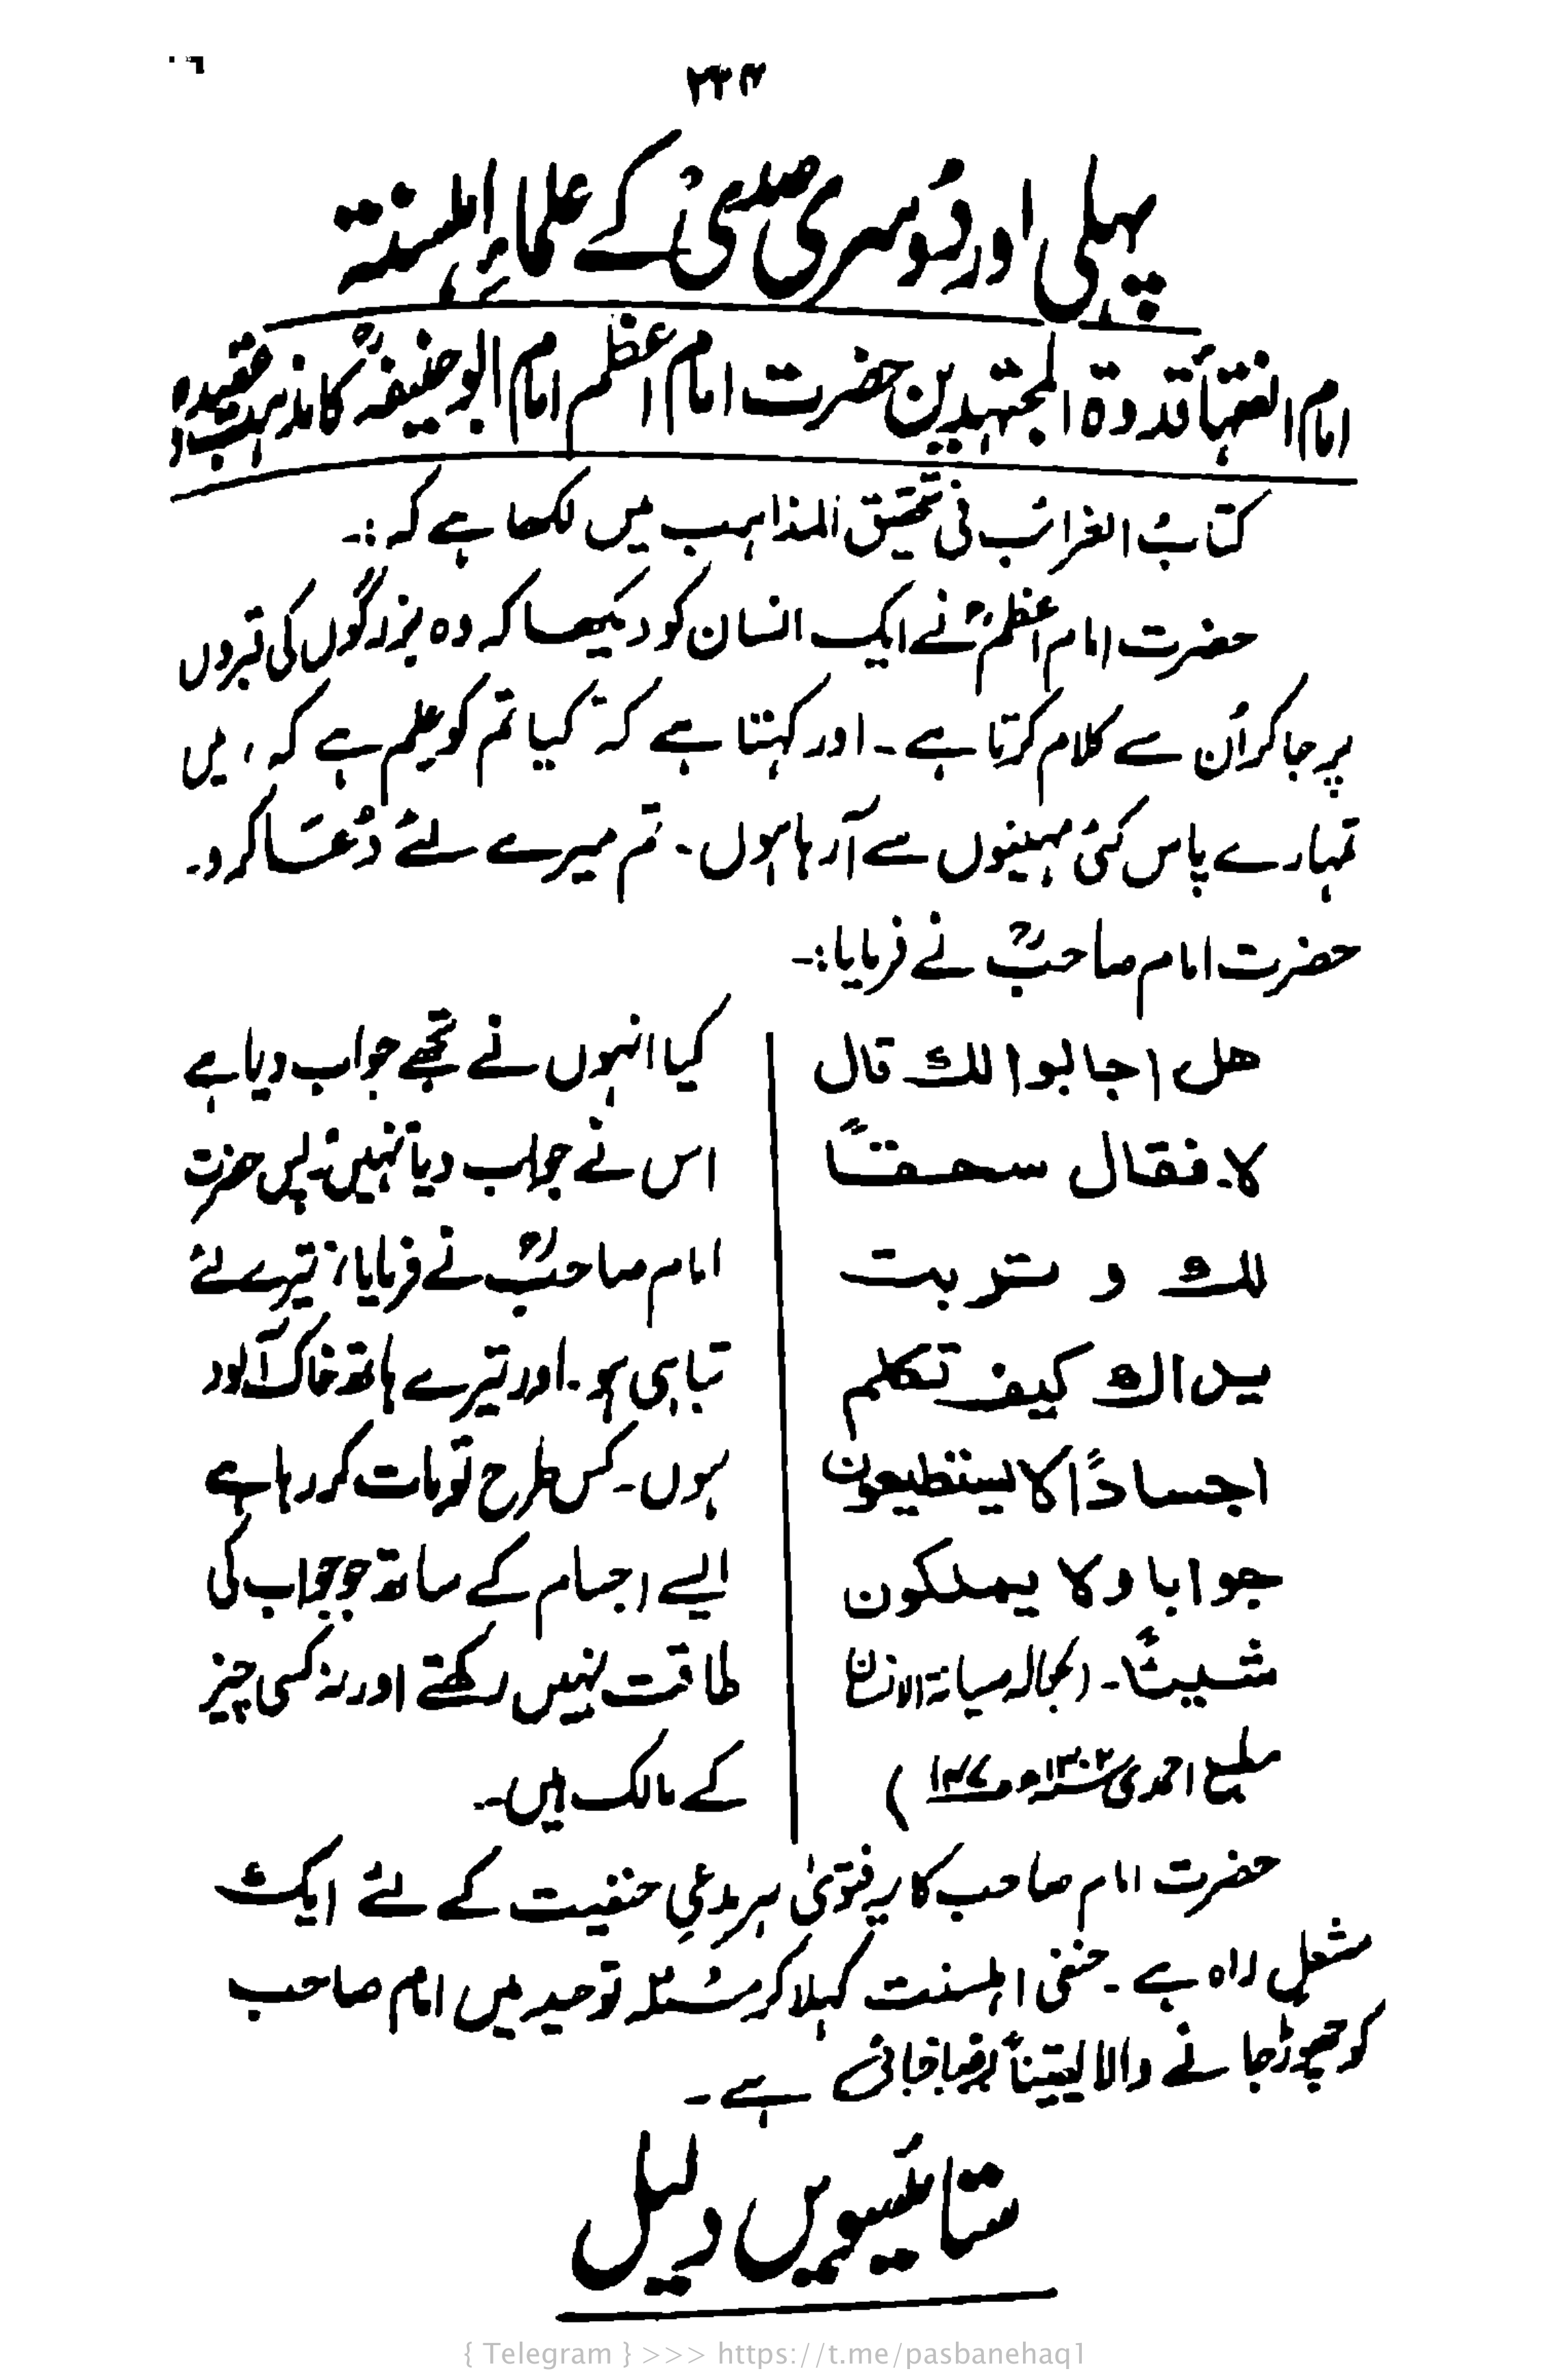 ۲۳۴
پہلی اور دُوسری صدی کے علماءِ اہلسنۃ
امام الفقہأ قدوۃ المجتہدین حضرت امام اعظم امام ابوحنیفہؒ کا مذہب و عقیدہ
کتابُ الغرائب فی تحقیق المذاہب میں لکھا ہے کہ :۔
حضرت امام اعظمؒ نے ایک انسان کو دیکھا کہ وہ بزرگوں کی قبروں
پر جاکر اُن سے کلام کرتا ہے ۔ اور کہتا ہے کہ کیا تم کو علم ہے کہ ، میں
تمہارے پاس کئی مہینوں سے آرہا ہوں ۔ تم میرے لئے دُعا کرو ۔
حضرت امام صاحبؒ نے فرمایا :۔
ھل اجابوا لك قال
لا۔ فقال سحقاً
لك و تربت
يداك كيف تكلم
اجساداً لا يستطيعون
جوابا ولا يملكون
شيئاً۔ (بحوالہ صیانۃ الانسان
مطبع احمدی
کیا انہوں نے تجھے جواب دیا ہے
اس نے جواب دیا نہیں، پس حضرت
امام صاحبؒ نے فرمایا، تیرے لئے
تباہی ہو ۔ اور تیرے ہاتھ خاک آلود
ہوں ۔ کس طرح تو بات کر رہا ہے
ایسے اجسام کے ساتھ جو جواب کی
طاقت نہیں رکھتے اور نہ کسی چیز
کے مالک ہیں ۔
حضرت امام صاحب کا یہ فتویٰ ہر مدعیِ حنفیت کے لئے ایک
مشعلِ راہ ہے ۔ حنفی اہلسنت کہلا کر مسئلہ توحید میں امام صاحب
کو چھوڑ جانے والا یقیناً رضاخانی ہے ۔
ستائیسویں دلیل
{ Telegram } >>> https://t.me/pasbanehaq1